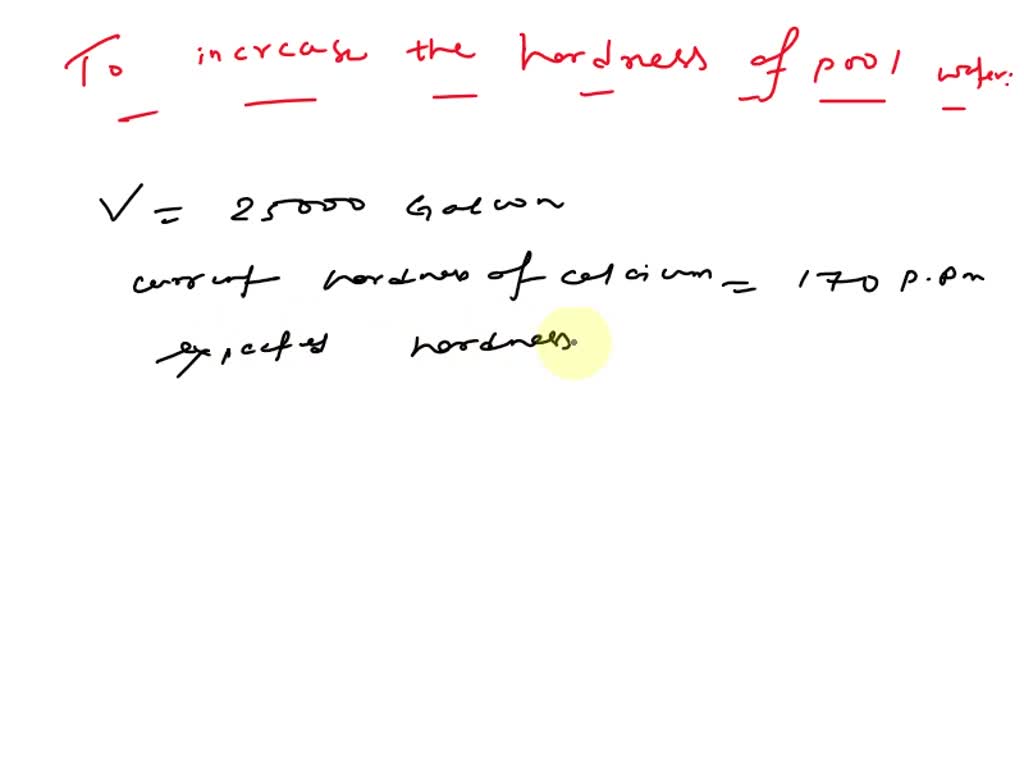 To increase the hardness of pool water:
V = 25000 Gallon
current hardness of calcium = 170 p.pm
expected hardness